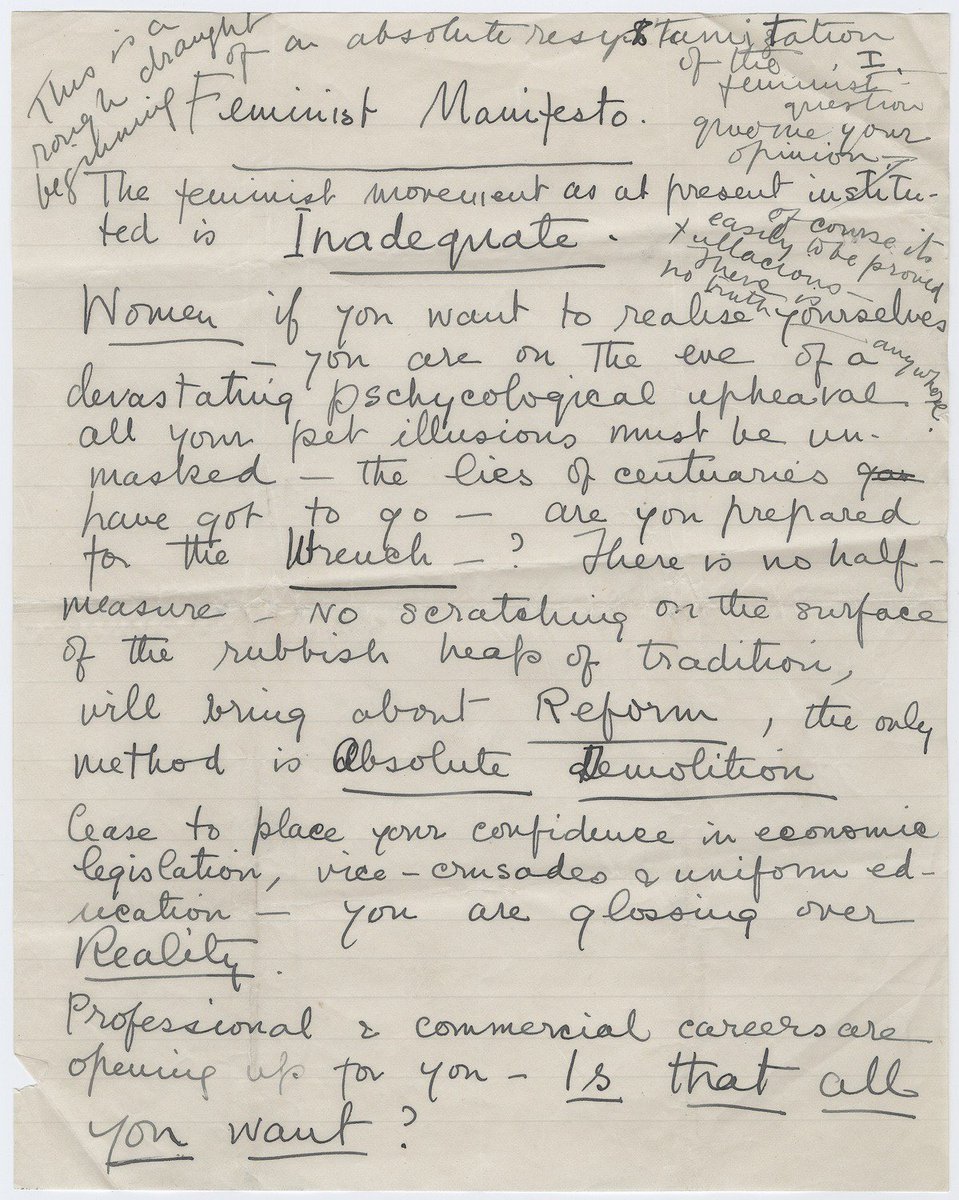 This is a
rough draught
beginning
of an absolute resystamitation
of the
feminist
question
give me your
opinion
I.
Feminist Manifesto.
The feminist movement as at present institu-
ted is Inadequate.
x of course its
easily to be proved
fallacious —
There is
no truth
anywhere.
Women if you want to realise yourselves
— you are on the eve of a
devastating pschycological upheaval
all your pet illusions must be un-
masked — the lies of centuaries
have got to go — are you prepared
for the Wrench —? There is no half-
measure — No scratching on the surface
of the rubbish heap of tradition,
will bring about Reform, the only
method is Absolute Demolition
Cease to place your confidence in economic
legislation, vice-crusades & uniform ed-
ucation — you are glossing over
Reality.
Professional & commercial careers are
opening up for you — Is that all
you want?